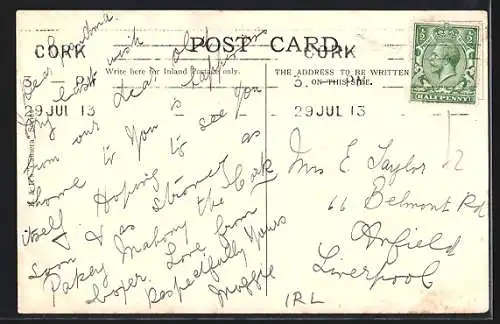 CORK
3. PM
29 JUL 13
POST CARD.
Write here for Inland Postage only.
THE ADDRESS TO BE WRITTEN
ON THIS SIDE.
CORK
3. PM
29 JUL 13
HALFPENNY
Dear Grandma
My best wish
from our dear old
home to you &
Hoping to see you
itself & as strong as
soon
Pakey Mahony the Cork
boxer. Love from
Respectfully Yours
Maggie
Mrs E. Taylor
66 Belmont Rd
Anfield
Liverpool
IRL